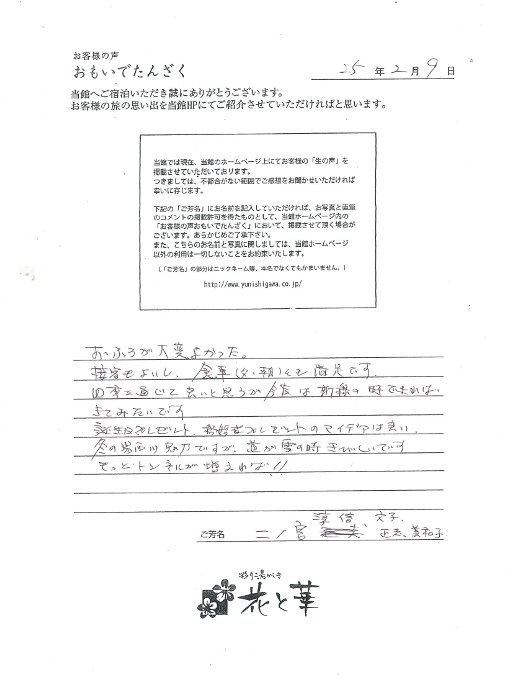 お客様の声
おもいでたんざく
25 年 2 月 9 日
当館へご宿泊いただき誠にありがとうございます。
お客様の旅の思い出を当館HPにてご紹介させていただければと思います。
当館では現在、当館のホームページ上にてお客様の「生の声」を
掲載させていただいております。
つきましては、不都合がない範囲でご感想をお聞かせいただければ
幸いに存じます。
下記の「ご芳名」にお名前を記入していただければ、お写真と直筆
のコメントの掲載許可を得たものとして、当館ホームページ内の
「お客様の声おもいでたんざく」において、掲載させて頂く場合が
ございます。あらかじめご了承下さい。
また、こちらのお名前と写真に関しましては、当館ホームページ
以外の利用は一切しないことをお約束いたします。
(「ご芳名」の部分はニックネーム等、本名でなくてもかまいません。)
http://www.yunishigawa.co.jp/
おふろが大変よかった。
接客もよいし、食事(夕、朝)も満足です。
四季を通じて良いと思うが今度は新緑の時でも
きてみたいです
誕生日プレゼント、プレゼントのアイデアは良い、
冬の湯西川魅力ですが、道が雪の時きびしいです
もっとトンネルが増えれば!!
ご芳名 二ノ宮 淳 信 文子
正志、美和子
彩り湯かしき
花と華